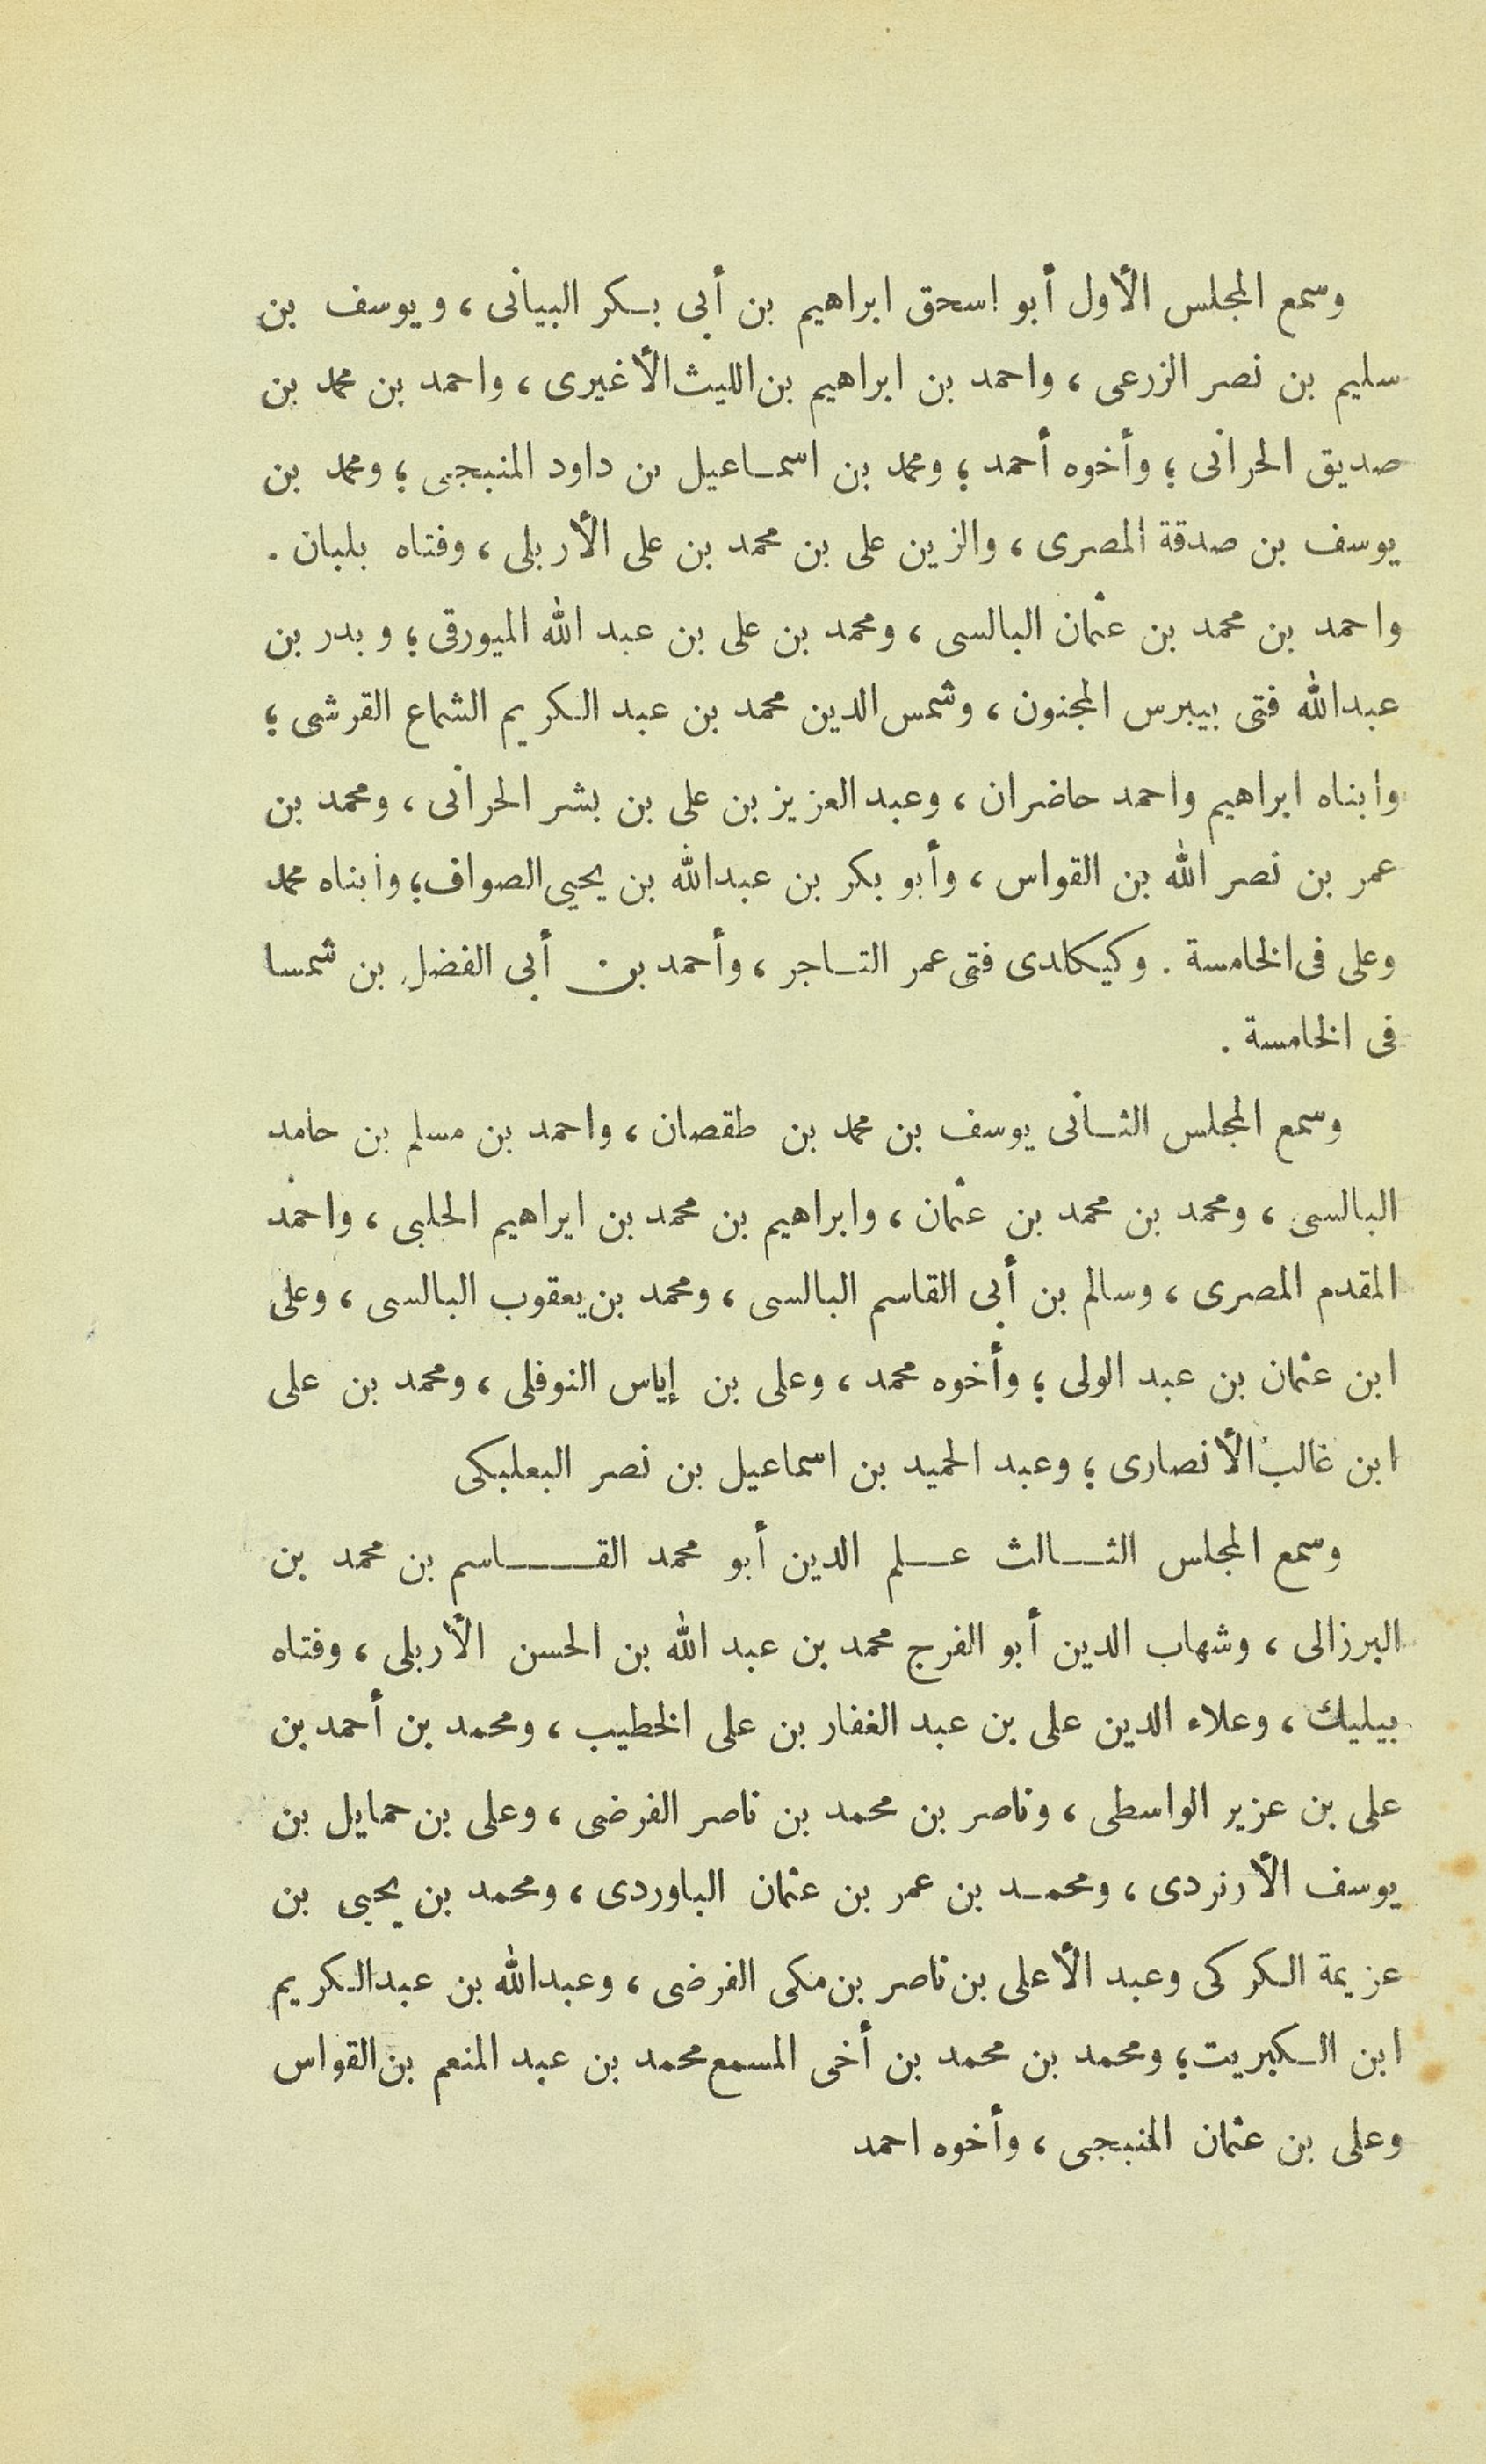 وسمع المجلس الأول أبو اسحق ابراهيم بن أبى بكر البيانى ، ويوسف بن
سليم بن نصر الزرعى ، واحمد بن ابراهيم بن الليث الأغيرى ، واحمد بن محمد بن
صديق الحرانى ؛ وأخوه أحمد ؛ ومحمد بن اسماعيل بن داود المنبجى ؛ ومحمد بن
يوسف بن صدقة المصرى ، والزين على بن محمد بن على الأربلى ، وفتاه بلبان .
واحمد بن محمد بن عثمان البالسى ، ومحمد بن على بن عبد الله الميورقى ؛ وبدر بن
عبدالله فتى بيبرس المجنون ، وشمس الدين محمد بن عبد الكريم الشماع القرشى ؛
وابناه ابراهيم واحمد حاضران ، وعبد العزيز بن على بن بشر الحرانى ، ومحمد بن
عمر بن نصر الله بن القواس ، وأبو بكر بن عبدالله بن يحيى الصواف ؛ وابناه محمد
وعلى فى الخامسة . وكيكلدى فتى عمر التاجر ، وأحمد بن أبى الفضل بن شمسا
فى الخامسة .
وسمع المجلس الثانى يوسف بن محمد بن طقصان ، واحمد بن مسلم بن حامد
البالسى ، ومحمد بن محمد بن عثمان ، وابراهيم بن محمد بن ايراهيم الحلبى ، واحمد
المقدم المصرى ، وسالم بن أبى القاسم البالسى ، ومحمد بن يعقوب البالسى ، وعلى
ابن عثمان بن عبد الولى ؛ وأخوه محمد ، وعلى بن إياس النوفلى ، ومحمد بن على
ابن غالب الأنصارى ؛ وعبد الحميد بن اسماعيل بن نصر البعلبكى
وسمع المجلس الثالث علم الدين أبو محمد القاسم بن محمد بن
البرزالى ، وشهاب الدين أبو الفرج محمد بن عبد الله بن الحسن الأربلى ، وفتاه
بيليك ، وعلاء الدين على بن عبد الغفار بن على الخطيب ، ومحمد بن أحمد بن
على بن عزير الواسطى ، وناصر بن محمد بن ناصر الفرضى ، وعلى بن حمايل بن
يوسف الأرنردى ، ومحمد بن عمر بن عثمان الباوردى ، ومحمد بن يحيى بن
عزيمة الكركى وعبد الأعلى بن ناصر بن مكى الفرضى ، وعبدالله بن عبدالكريم
ابن الكبريت ؛ ومحمد بن محمد بن أخى المسمع محمد بن عبد المنعم بن القواس
وعلى بن عثمان المنبجى ، وأخوه احمد